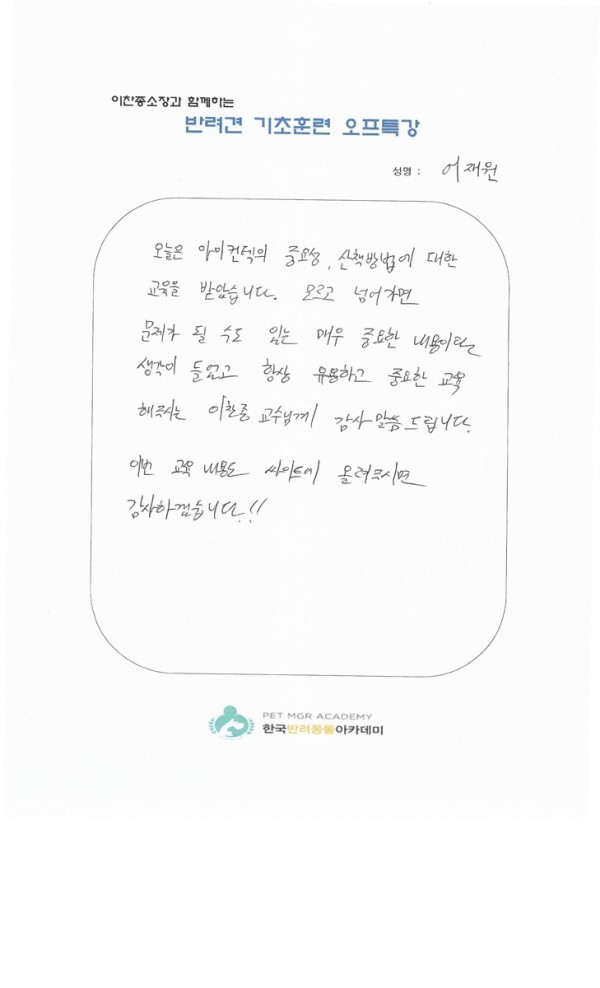 이찬종소장과 함께하는
반려견 기초훈련 오프특강
성명 : 어재원
오늘은 아이컨텍의 중요성, 산책방법에 대한
교육을 받았습니다. 모르고 넘어가면
문제가 될 수도 있는 매우 중요한 내용이라는
생각이 들었고 항상 유용하고 중요한 교육
해주시는 이찬종 교수님께 감사말씀드립니다.
이번 교육 내용도 싸이트에 올려주시면
감사하겠습니다!!
PET MGR ACADEMY
한국반려동물아카데미